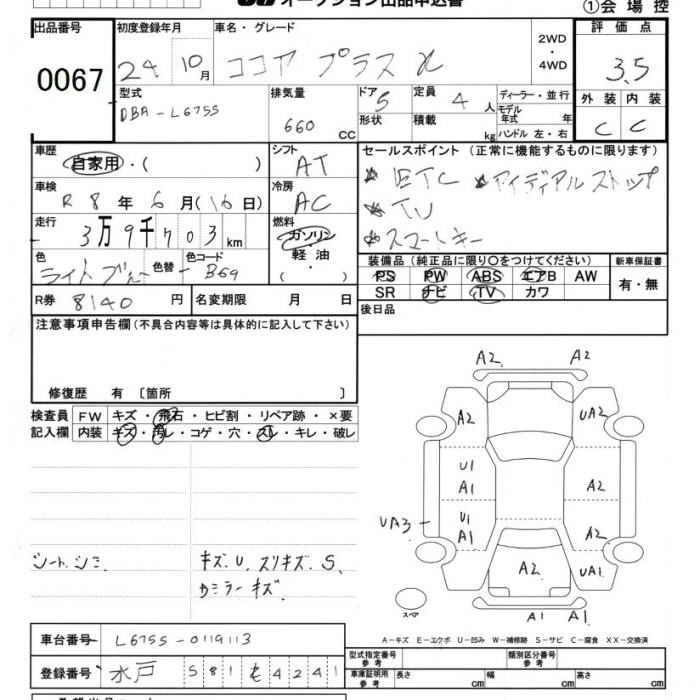 オークション出品申込書
①会場控
出品番号 初度登録年月 車名・グレード 評価点
0067 24 10月 ココア プラス X 2WD・4WD 3.5
型式 排気量 ドア 定員 ディーラー・並行 外装 内装
DBA-L675S 660 CC 5 4人 モデル年式 年 C C
形状 積載 kg ハンドル 左・右
車歴 シフト セールスポイント (正常に機能するものに限ります)
自家用・( ) AT ETC アイディアルストップ
車検 冷房 TV
R8年6月(16日) AC スマートキー
走行 燃料
3万9千703km ガソリン・軽油・( )
色 色替 色コード 装備品(純正品に限り○をつけてください) 新車保証書
ライトブルー B69 PS PW ABS エアB AW 有・無
R券 8140円 名変期限 月 日 SR ナビ TV カワ
注意事項申告欄(不具合内容等は具体的に記入して下さい) 後日品
修復歴 有 〔箇所 〕
検査員 FW キズ・飛石・ヒビ割・リペア跡・×要
記入欄 内装 キズ・汚レ・コゲ・穴・スレ・キレ・破レ
A2 A2
A2 UA2
U1
A1 A2
U1
UA3 A1 A2
A2
UA1
A1 A1
スペア
シートシミ キズ.U.スリキズ S.
カミラーキズ
A-キズ E-エクボ U-凹み W-補修跡 S-サビ C-腐食 XX-交換済
車台番号 L675S-0119113
型式指定番号 参考 類別区分番号 参考
登録番号 水戸 581 4241
車庫証明用 参考 長さ cm 幅 cm 高さ cm